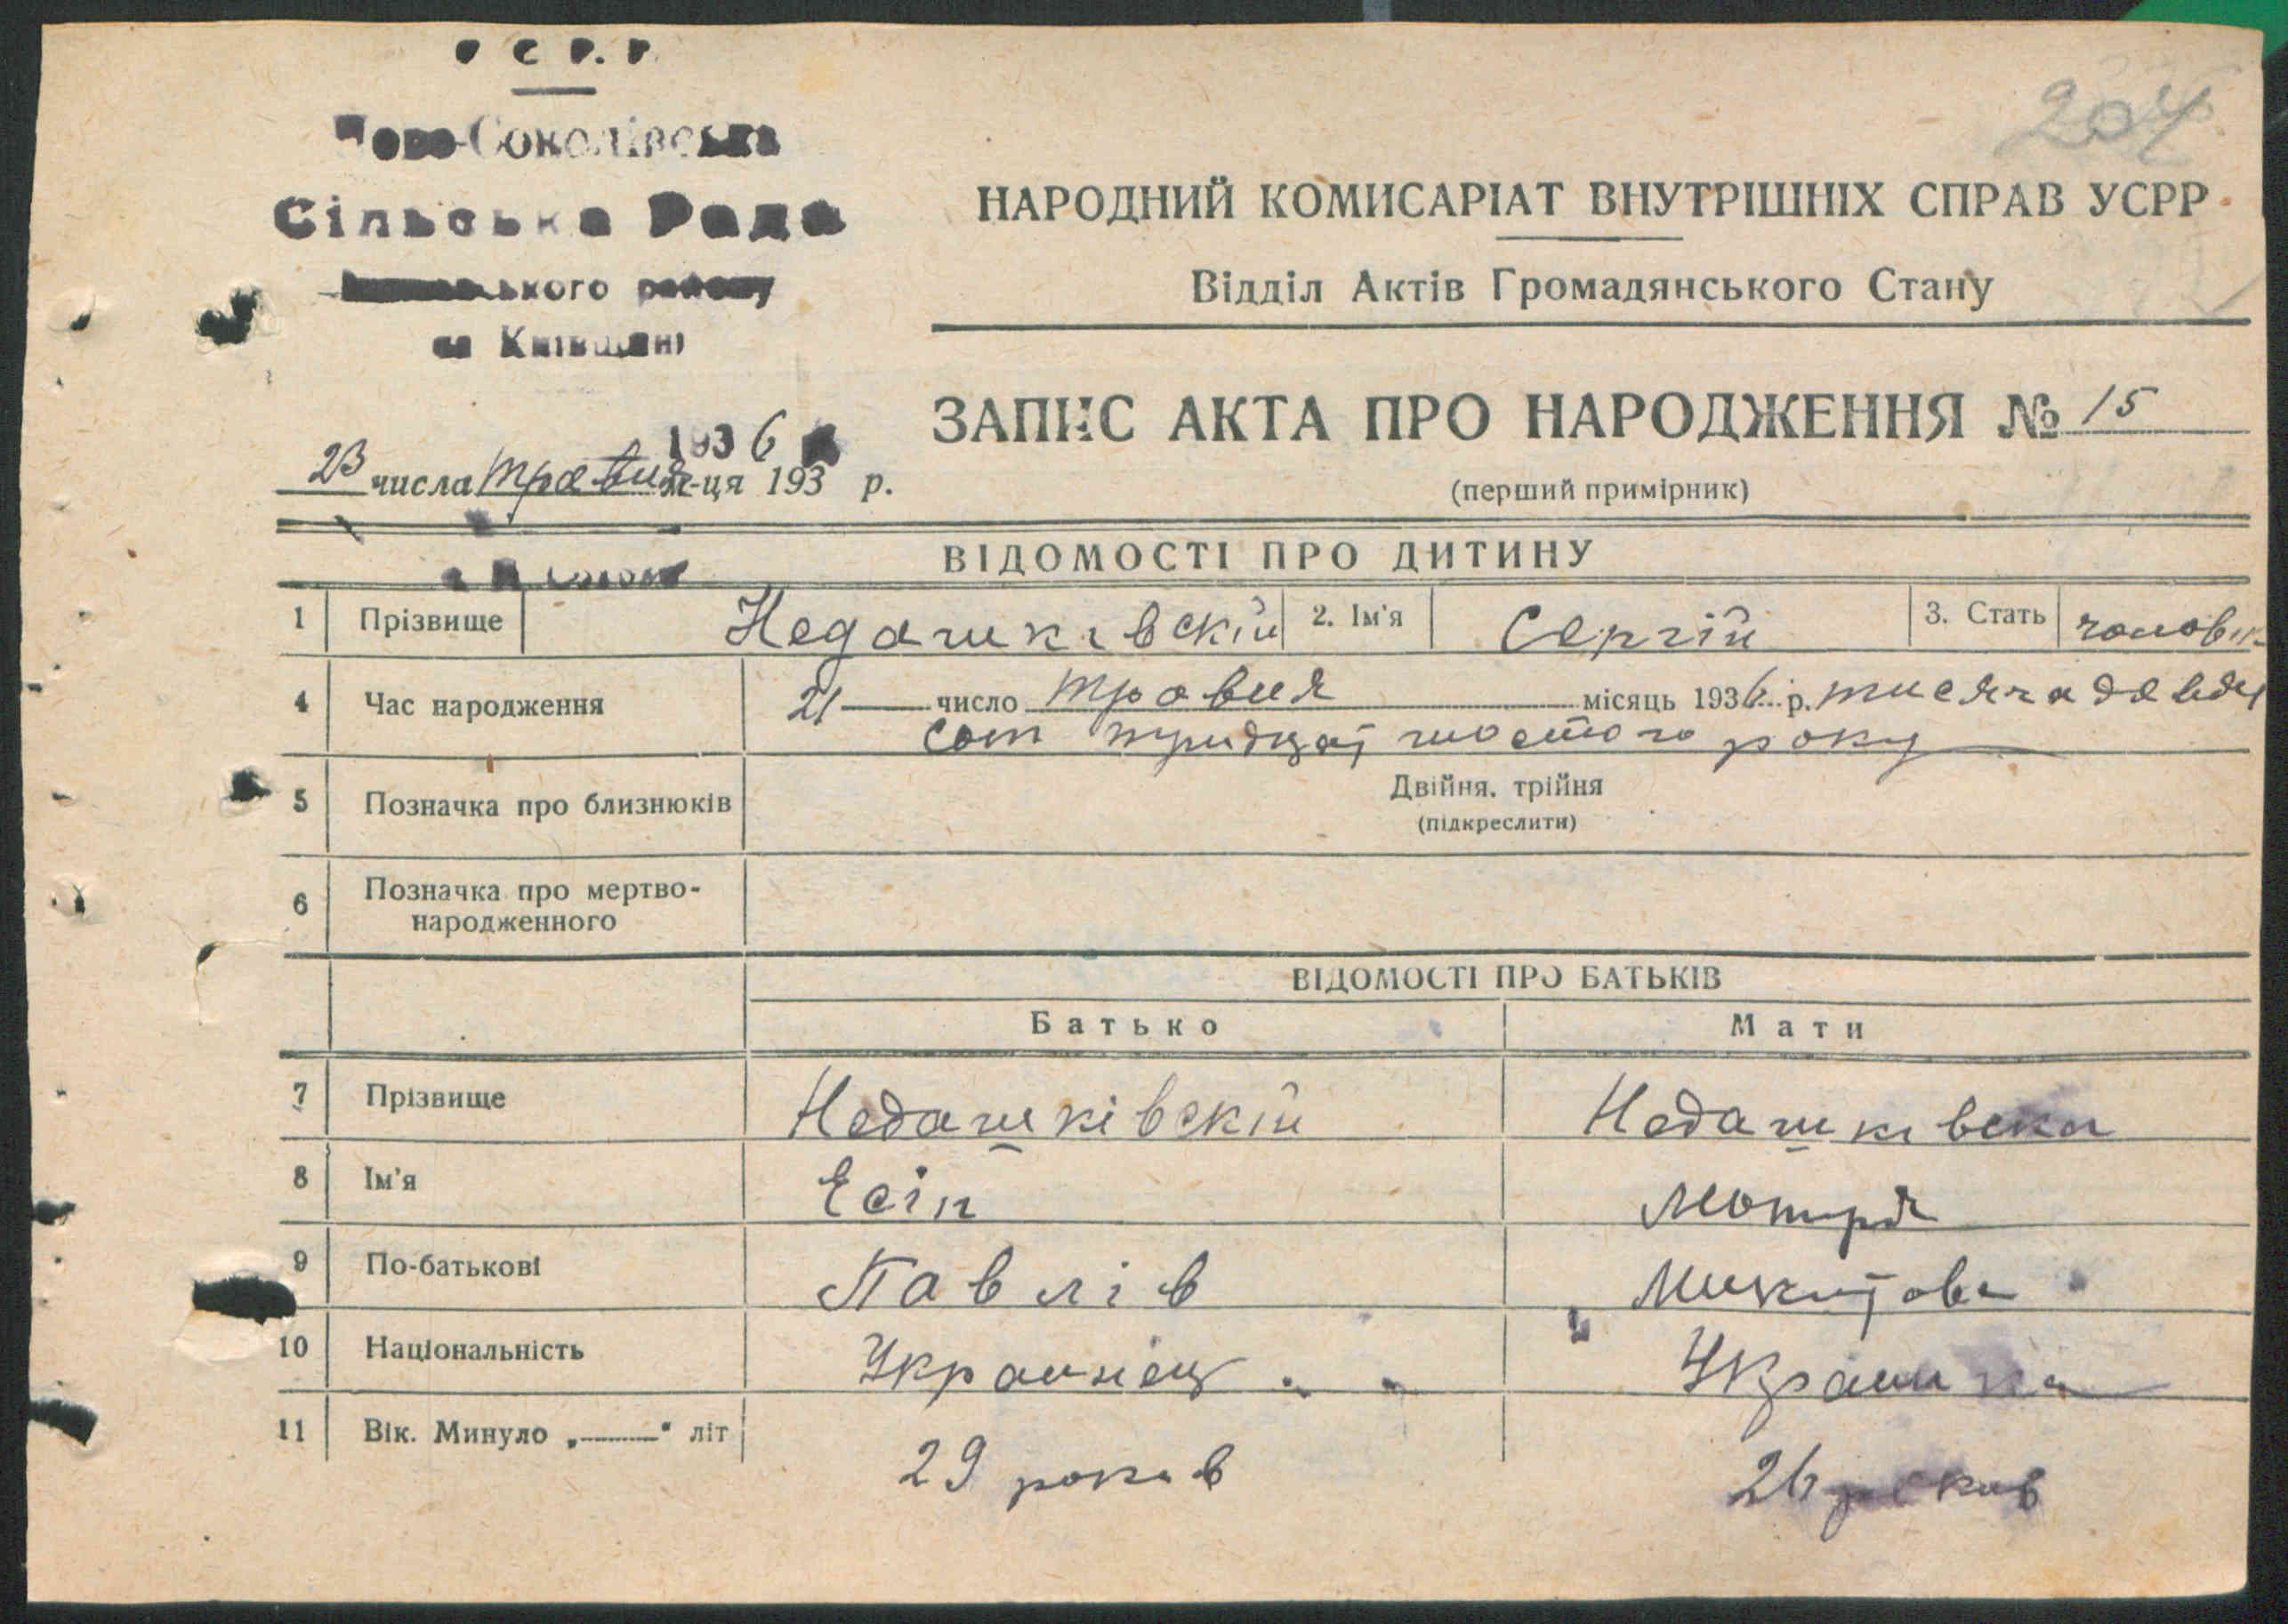 УСРР
Ново-Соколівська
Сільська Рада
ського району
на Київщині
1936
23 числа травня м-ця 193 р.
204
НАРОДНИЙ КОМИСАРІАТ ВНУТРІШНІХ СПРАВ УСРР
Відділ Актів Громадянського Стану
ЗАПИС АКТА ПРО НАРОДЖЕННЯ № 15
(перший примірник)
ВІДОМОСТІ ПРО ДИТИНУ
1 Прізвище Недашківскій 2. Ім'я Сергій 3. Стать чоловік
4 Час народження 21 число травня місяць 1936 р. тисяча девять
сот тридцять шостого року
5 Позначка про близнюків Двійня, трійня
(підкреслити)
6 Позначка про мертво-
народженного
ВІДОМОСТІ ПРО БАТЬКІВ
Батько Мати
7 Прізвище Недашківскій Недашківска
8 Ім'я Есіп Мотря
9 По-батькові Павлів Микитова
10 Національність Украинец Украинка
11 Вік. Минуло „——" літ 29 років 26 років